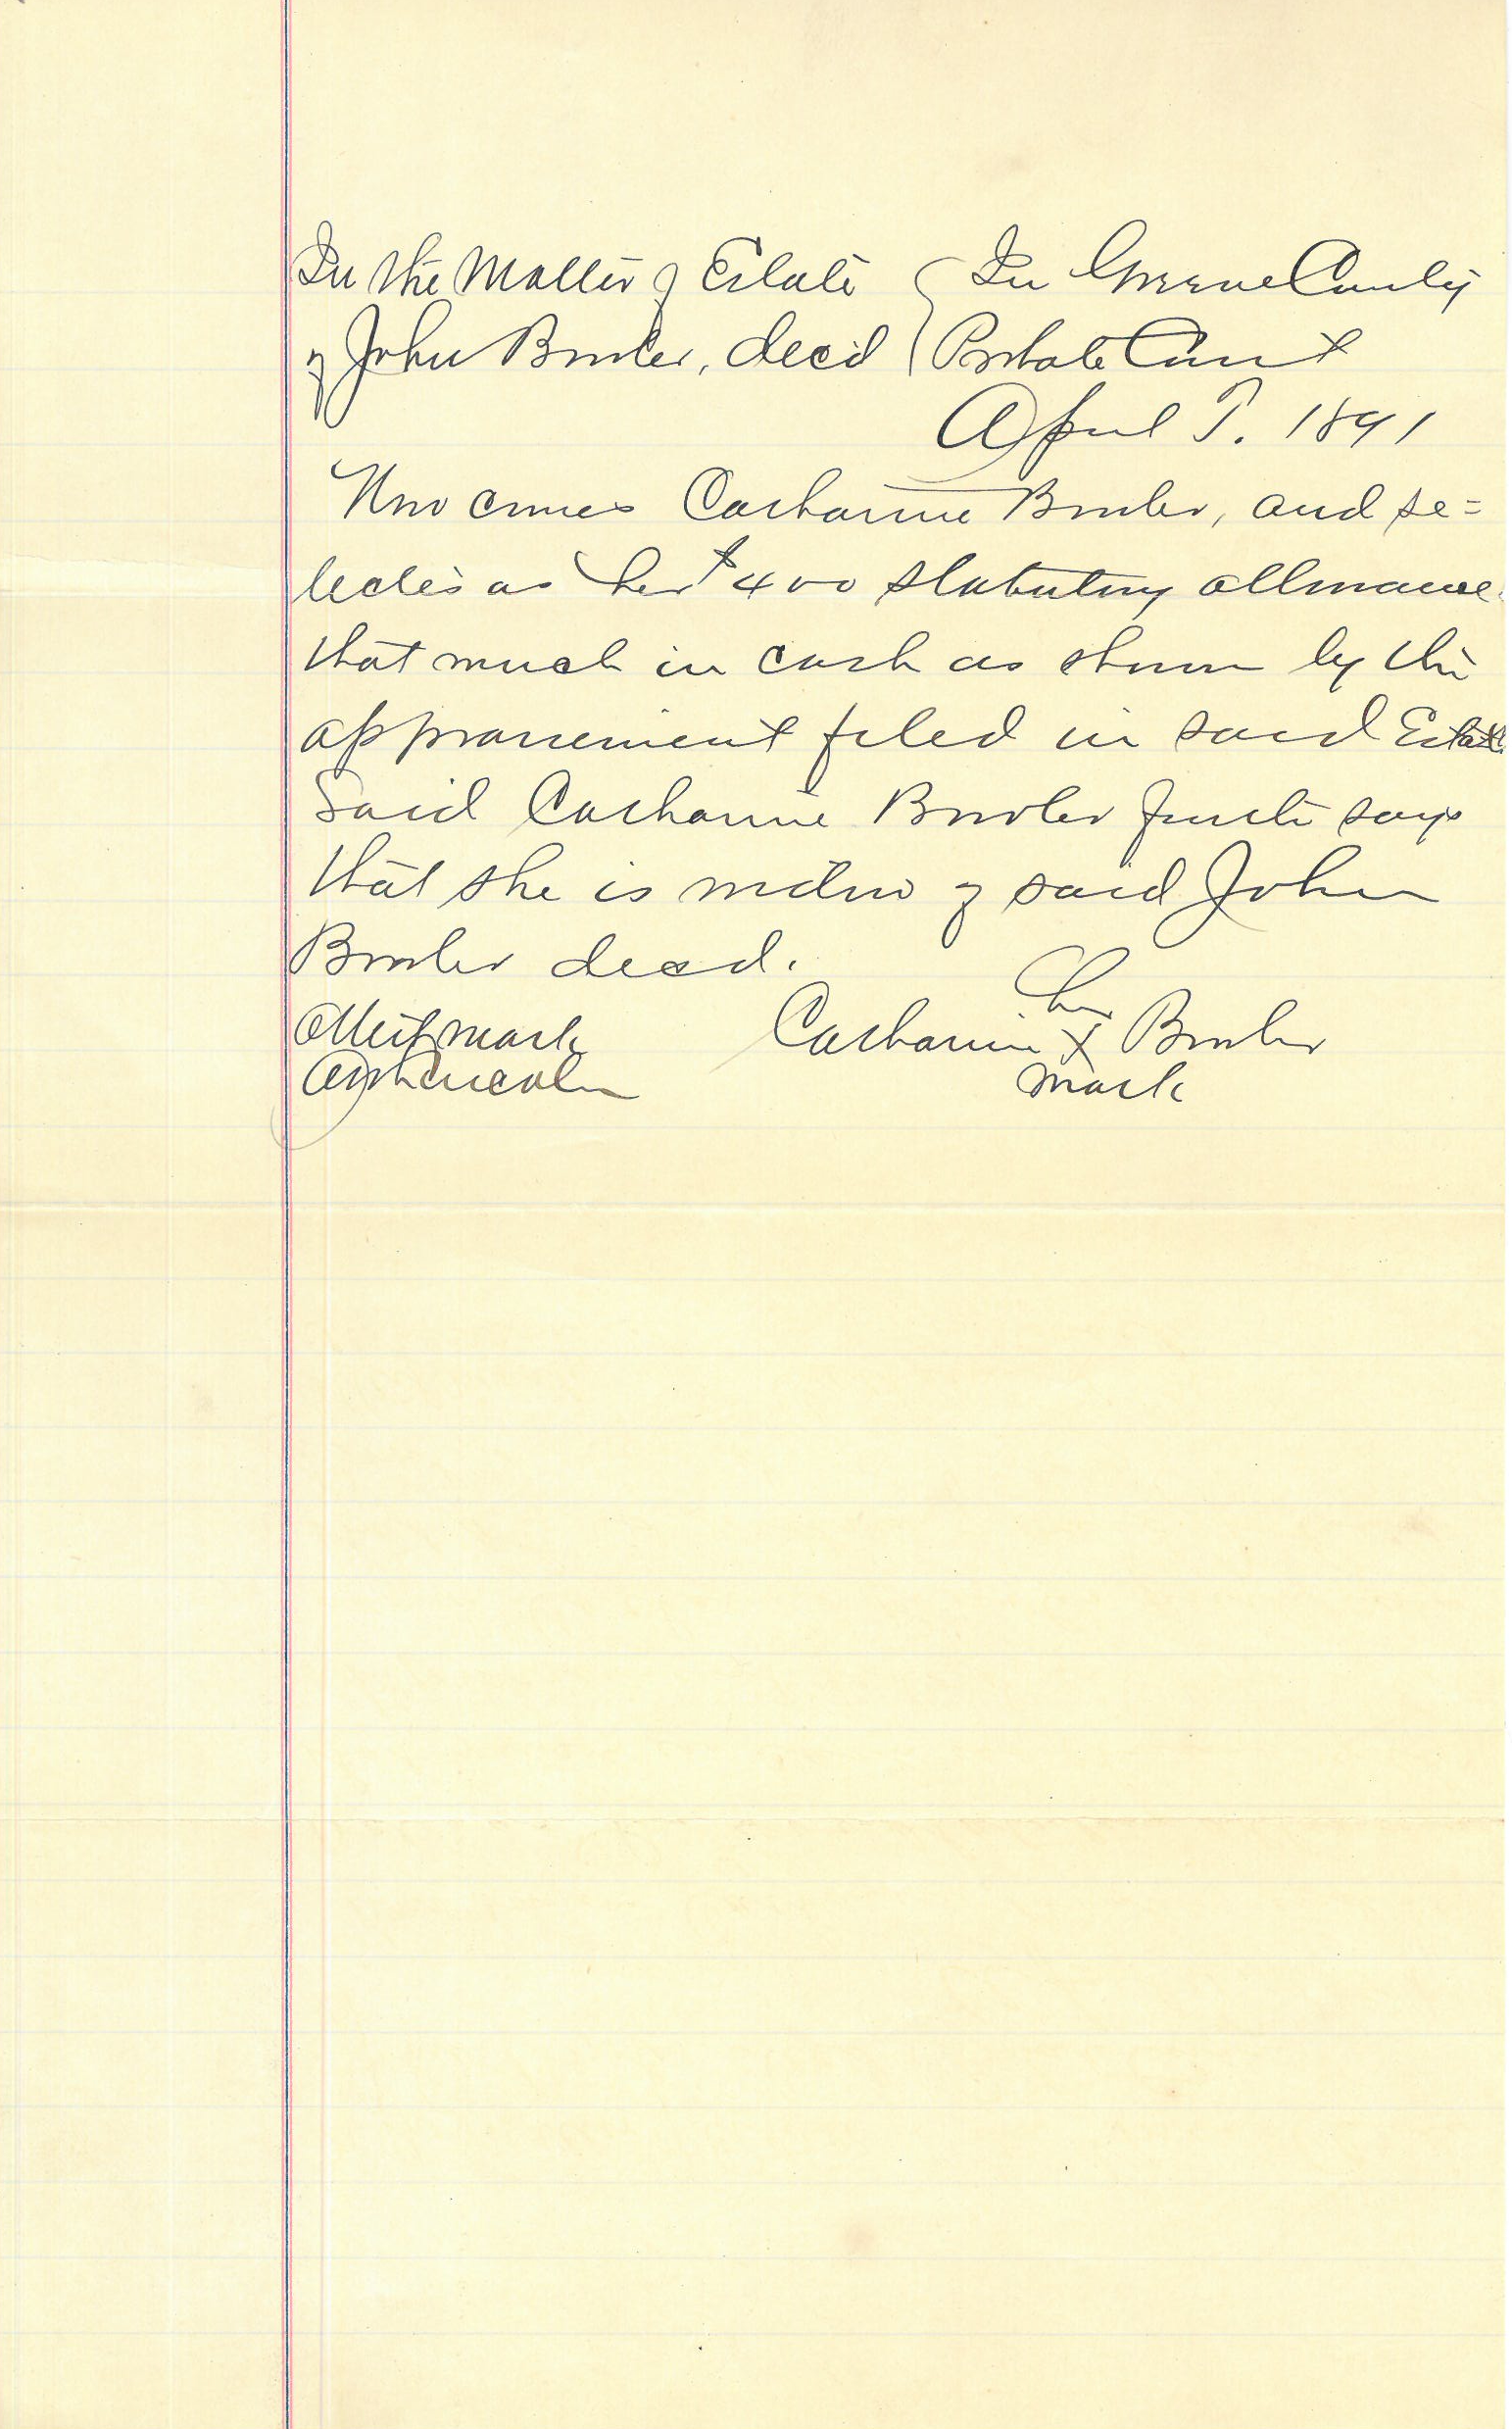 In the Matter of Estate { In Greene County
of John Bowler, dec'd { Probate Court
April T. 1891
Now comes Catharine Bowler, and se=
lects as her $400 statutory allowance
that much in cash as shown by the
appraisement filed in said Estate.
Said Catharine Bowler further says
that she is widow of said John
Bowler decd.
her
Attest mark Catharine X Bowler
Lincoln mark